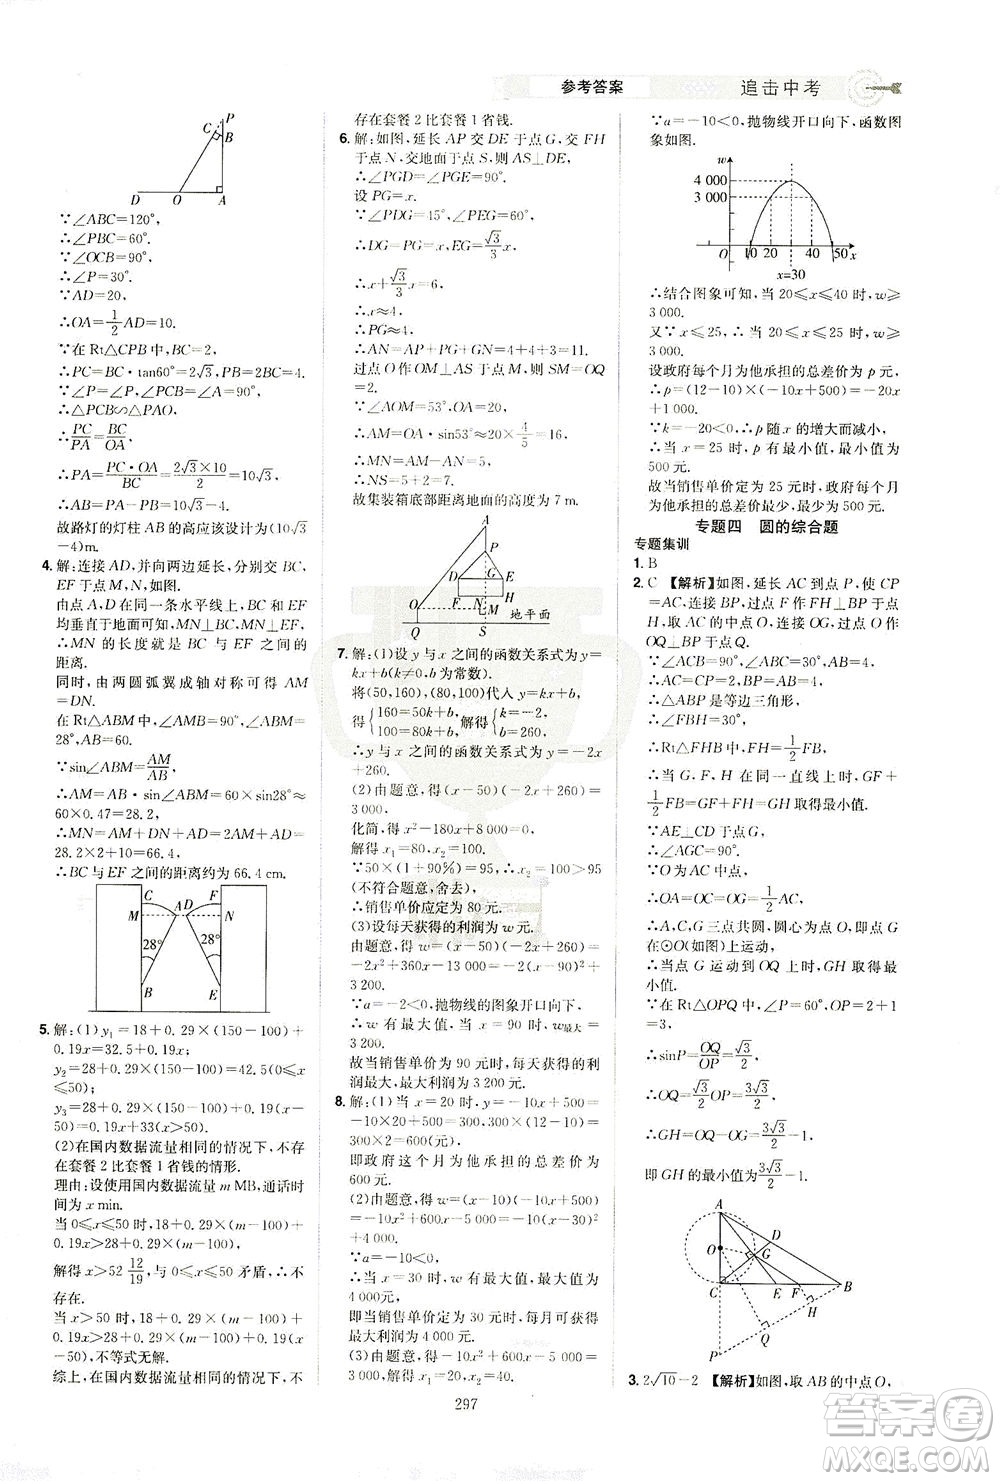 参考答案
追击中考
P
C
B
D
O
A
∵∠ABC=120°,
∴∠PBC=60°.
∵∠OCB=90°,
∴∠P=30°.
∵AD=20,
∴OA=1/2AD=10.
∵在 Rt△CPB 中,BC=2,
∴PC=BC·tan60°=2√3,PB=2BC=4.
∵∠P=∠P,∠PCB=∠A=90°,
∴△PCB∽△PAO.
∴PC/PA=BC/OA.
∴PA=PC·OA/BC=2√3×10/2=10√3.
∴AB=PA-PB=(10√3-4)m.
故路灯的灯柱 AB 的高应该设计为(10√3
-4)m.
4. 解:连接 AD,并向两边延长,分别交 BC,
EF 于点 M,N,如图.
由点 A,D 在同一条水平线上,BC,EF
均垂直于地面可知,MN⊥BC,MN⊥EF,
∴MN 的长度就是 BC 与 EF 之间的
距离.
同时,由两圆弧翼成轴对称可得 AM
=DN.
在 Rt△ABM 中,∠AMB=90°,∠ABM=
28°,AB=60,
∵sin∠ABM=AM/AB,
∴AM=AB·sin∠ABM=60×sin28°≈
60×0.47=28.2,
∴MN=AM+DN+AD=2AM+AD=
28.2×2+10=66.4,
∴BC 与 EF 之间的距离约为 66.4 cm.
C
F
M
A D
N
28°
28°
B
E
5. 解:(1)y₁=18+0.29×(150-100)+
0.19x=32.5+0.19x(x≥0)
y₂=28+0.29×(150-100)=42.5(0≤x
≤50);
y₃=28+0.29×(150-100)+0.19×(x
-50)=0.19x+33(x>50).
(2)在国内数据流量相同的情况下,不存
在套餐 2 比套餐 1 省钱的情形.
理由:设使用国内数据流量 m MB,通话时
间为 x min.
当 0≤x≤50 时,18+0.29×(m-100)+
0.19x>28+0.29×(m-100),
解得 x>52 12/19,与 0≤x≤50 矛盾,∴不
存在.
当 x>50 时,18+0.29×(m-100)+
0.19x>28+0.29×(m-100)+0.19×(x
-50),不等式无解.
综上,在国内数据流量相同的情况下,不
存在套餐 2 比套餐 1 省钱.
6. 解:如图,延长 AP 交 DE 于点 G,交 FH
于点 N,交地面于点 S,则 AS⊥DE,
∴∠PGD=∠PGE=90°.
设 PG=x.
∵∠PDG=45°,∠PEG=60°,
∴DG=PG=x,EG=√3/3x,
∴x+√3/3x=6.3,
∴x≈4,
∴PG≈4,
∴AN=AP+PG+GN≈4+4+3=11.
过点 O 作 OM⊥AS 于点 M,则 SM=OQ
=2.
∵∠AOM=53°,OA=20,
∴AM=OA·sin53°≈20×4/5=16,
∴MN=AM-AN≈16-11=5,
∴NS=5+2=7.
故集装箱底部距离地面的高度为 7 m.
A
P
D G E
F N H
O M
地平面
Q S
7. 解:(1)设 y 与 x 之间的函数关系式为 y=
kx+b(k≠0,k,b 为常数).
将(50,160),(80,100)代入 y=kx+b,
得{160=50k+b, 100=80k+b, 解得{k=-2, b=260.
∴y 与 x 之间的函数关系式为 y=-2x
+260.
(2)由题意,得(x-50)(-2x+260)=
3 000,
化简,得 x²-180x+8 000=0,
解得 x₁=80,x₂=100.
∵50×(1+90%)=95,∴x₂=100>95
(不符合题意,舍去),
∴销售单价应定为 80 元.
(3)设每天获得的利润为 w 元.
由题意,得 w=(x-50)(-2x+260)=
-2x²+360x-13 000=-2(x-90)²+
3 200.
∵a=-2<0,抛物线的图象开口向下,
∴w 有最大值,当 x=90 时,w最大=
3 200.
故当销售单价为 90 元时,每天获得的利
润最大,最大利润为 3 200 元.
8. 解:(1)当 x=20 时,y=-10x+500=
-10×20+500=300,300×(12-10)=600,
即政府这个月为他承担的总差价为
600 元.
(2)由题意,得 w=(x-10)(-10x+500)
=-10x²+600x-5 000=-10(x-30)²
+4 000.
∵a=-10<0,
∴当 x=30 时,w 有最大值,最大值为
4 000元,
即当销售单价定为 30 元时,每月可获得
最大利润为 4 000 元.
(3)由题意,得-10x²+600x-5 000=
3 000,解得 x₁=20,x₂=40.
∵a=-10<0,抛物线开口向下,函数图
象如图.
w
4 000
3 000
O 10 20 30 40 50 x
x=30
∴结合图象可知,当 20≤x≤40 时,w≥
3 000.
又∵x≤25,∴当 20≤x≤25 时,w≥
3 000.
设政府每个月为他承担的总差价为 p 元,
∴p=(12-10)×(-10x+500)=-20x
+1 000.
∵k=-20<0,∴p 随 x 的增大而减小,
∴当 x=25 时,p 有最小值,最小值为
500 元.
故当销售单价定为 25 元时,政府每个月
为他承担的总差价最少,最少为 500 元.
专题四 圆的综合题
专题集训
1. B
2. C 【解析】如图,延长 AC 到点 P,使 CP=
AC,连接 BP,过点 F 作 FH⊥BP 于点
H,取 AC 的中点 O,连接 OG,过点 O 作
OQ⊥BP 于点 Q.
∵∠ACB=90°,∠ABC=30°,AC=2,
∴AC=CP=2,BP=AB=4,
∴△ABP 是等边三角形,
∴∠FBH=30°,
∴Rt△FHB 中,FH=1/2FB,
∴当 G,F,H 在同一直线上时,GF+
1/2FB=GF+FH=GH 取得最小值.
∵AE⊥CD 于点 G,
∴∠AGC=90°.
∵O 为 AC 中点,
∴OA=OC=OG=1/2AC,
∴A,C,G 三点共圆,圆心为点 O,即点 G
在⊙O(如图)上运动,
∴当点 G 运动到 OQ 上时,GH 取得最
小值.
∵在 Rt△OPQ 中,∠P=60°,OP=2+1
=3,
∴sinP=OQ/OP=√3/2,
∴OQ=√3/2OP=3√3/2,
∴GH=OQ-OG=3√3/2-1,
即 GH 的最小值为3√3/2-1.
A
D
O
G
C
E F
B
H
Q
P
3. 2√10-2 【解析】如图,取 AB 的中点 O,
297
答案圈
MXQE.COM